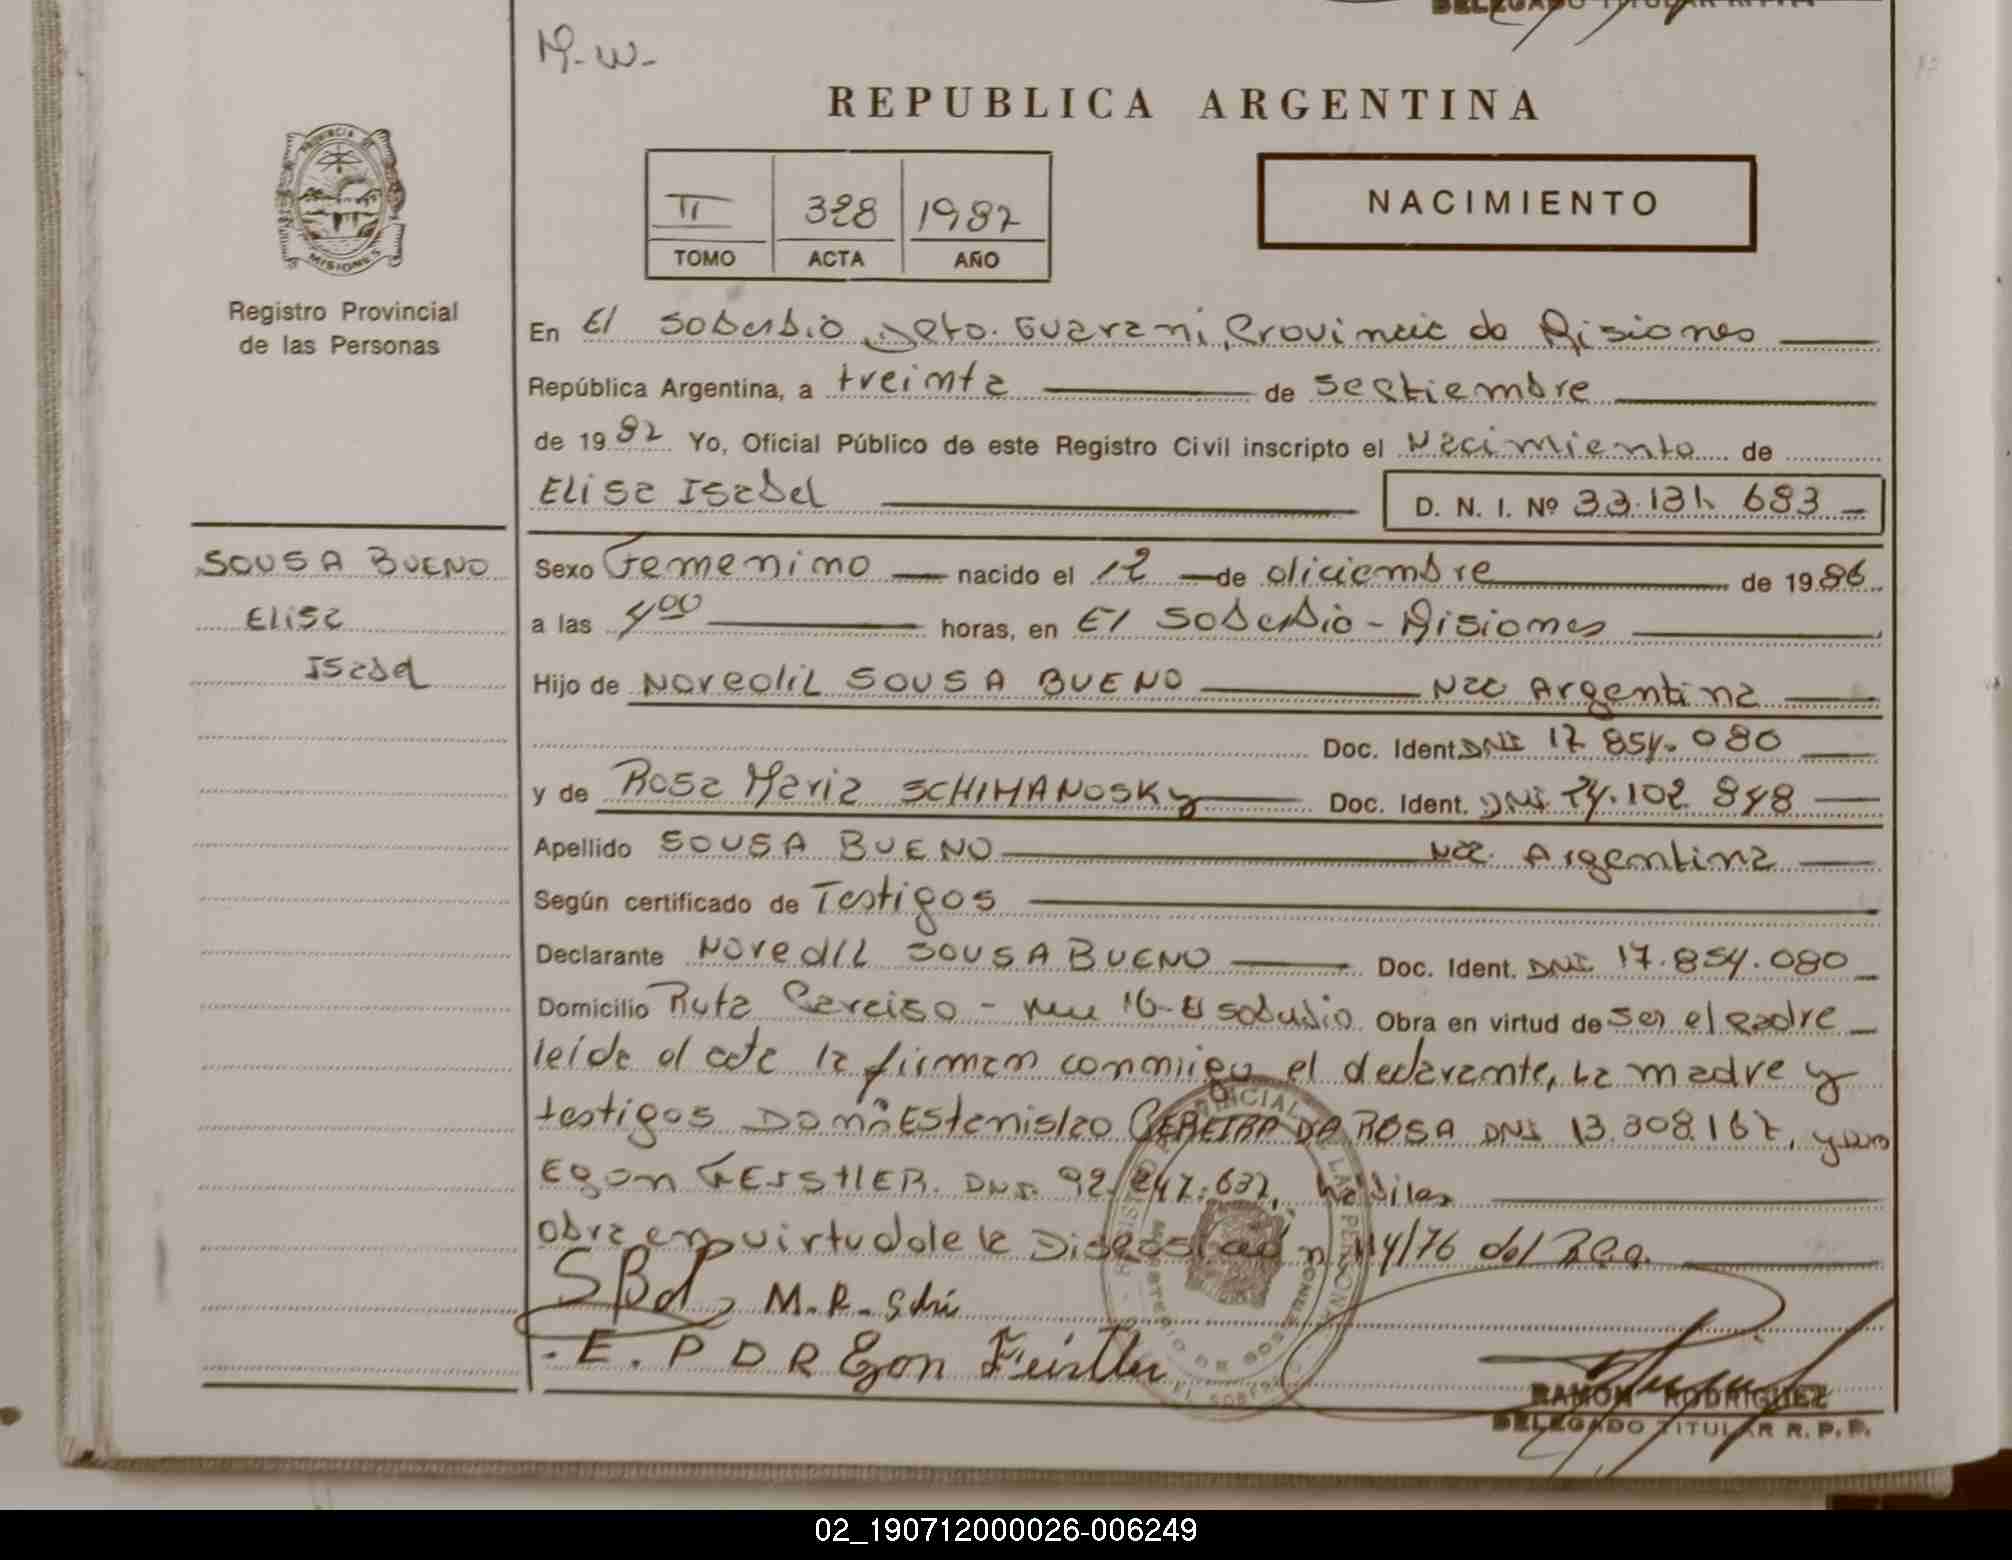 DELEGADO TITULAR R.P.P.
M-W-
REPUBLICA ARGENTINA
PROVINCIA DE
MISIONES
II 328 1987
TOMO ACTA AÑO
NACIMIENTO
Registro Provincial
de las Personas
En El Soberbio Dpto. Guarani, Provincia de Misiones
República Argentina, a treinta de septiembre
de 1987 Yo, Oficial Público de este Registro Civil inscripto el Nacimiento de
Elisa Isabel D. N. I. Nº 33.131. 683
SOUSA BUENO
Elisa
Isabel
Sexo Femenino nacido el 12 de diciembre de 1986
a las 4 00 horas, en El Soberbio - Misiones
Hijo de Noredil SOUSA BUENO Nac Argentina
Doc. Ident. DNI 17 854. 080
y de Rosa Maria SCHIMANOSKy Doc. Ident. DNI 24.102 848
Apellido SOUSA BUENO Nac. Argentina
Según certificado de Testigos
Declarante Noredil SOUSA BUENO Doc. Ident. DNI 17.854.080
Domicilio Ruta - Km 16 - El Soberbio Obra en virtud de ser el padre
leida el acta la firman conmigo el declarante, la madre y
testigos Don Estanislao PEREIRA DA ROSA DNI 13.308.167, y Don
Egon FEISTLER. DNI. 92.247.637, habiles
obra en virtud de la Disposición n 114/76 del
SBd, M.R. Schi
E. P D R Egon Feistler
REGISTRO PROVINCIAL DE LAS PERSONAS
MINISTERIO DE GOBIERNO
EL SOBERBIO
RAMON RODRIGUEZ
DELEGADO TITULAR R. P. P.
02_190712000026-006249